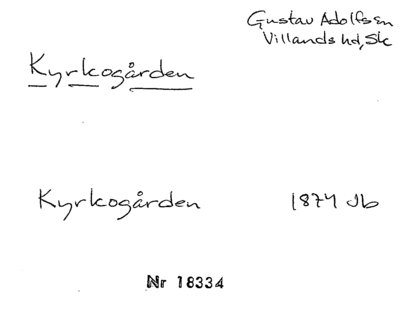 Gustav Adolfs sn
Villands hd, Sk
Kyrkogården
Kyrkogården 1874 Jb
Nr 18334